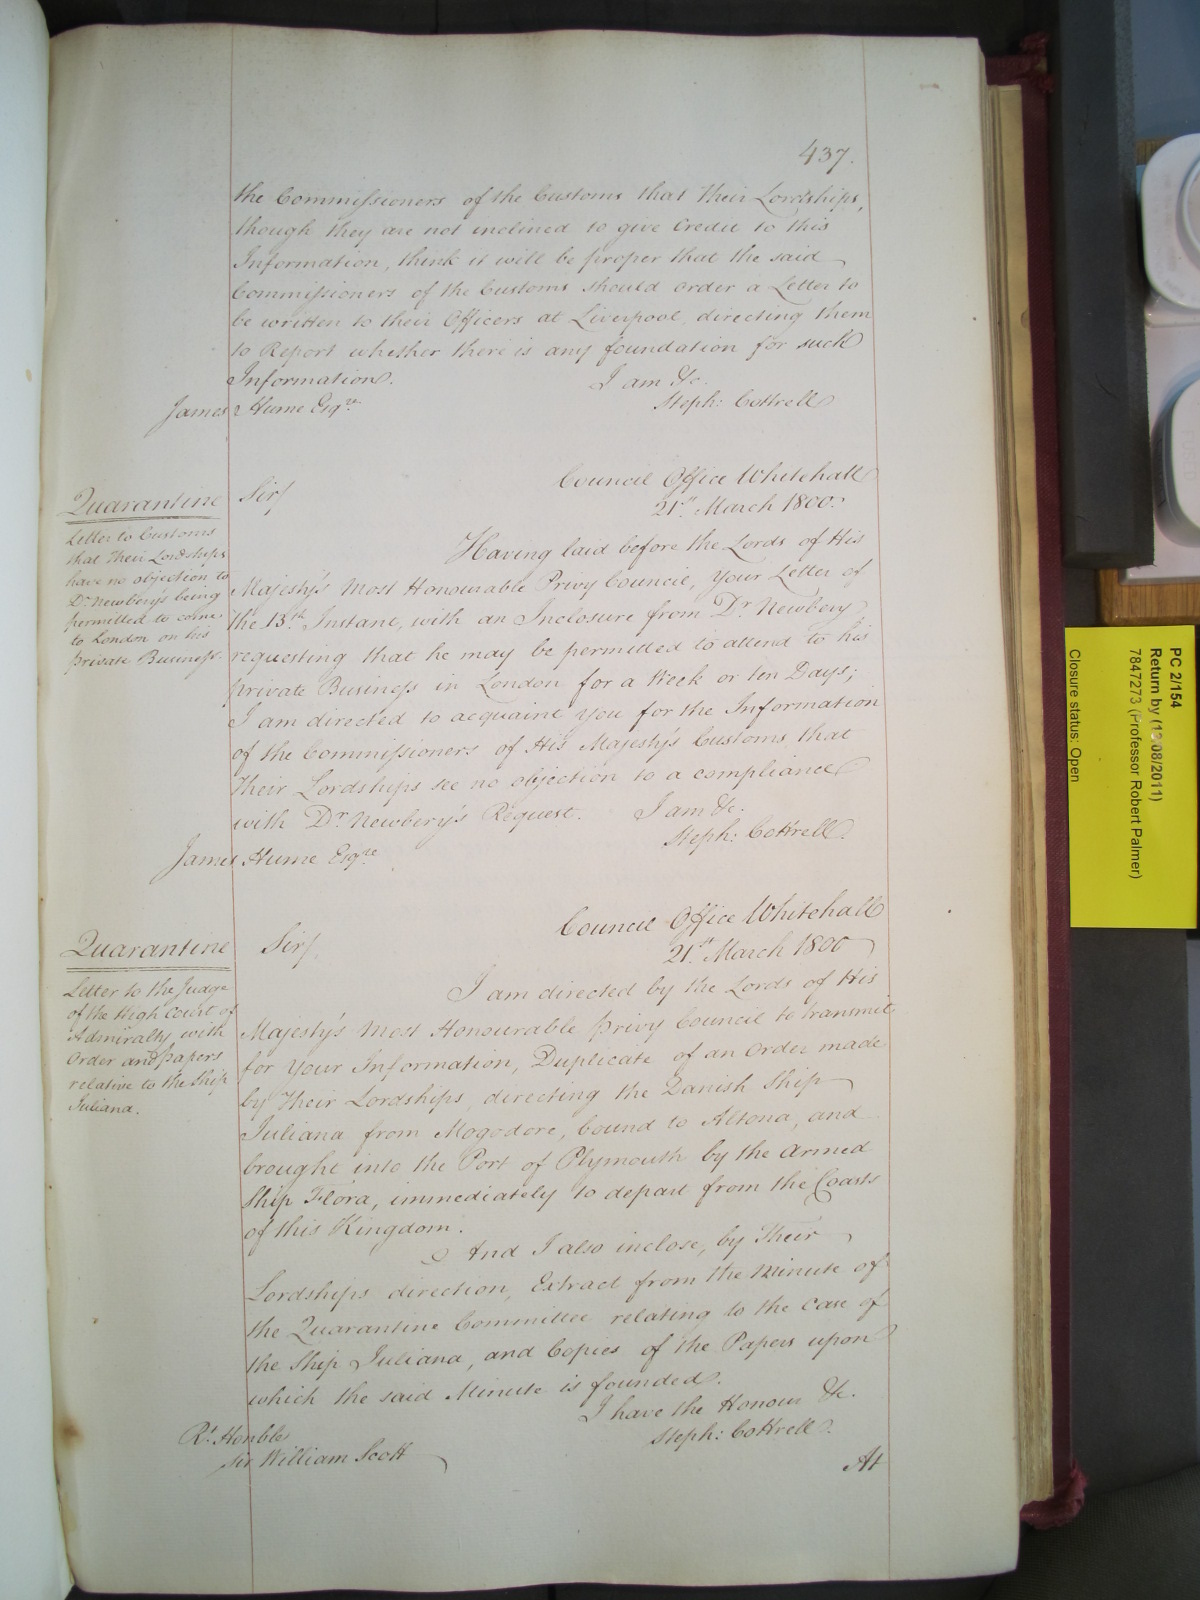 437.
the Commissioners of the Customs that Their Lordships,
though they are not inclined to give Credit to this
Information, think it will be proper that the said
Commissioners of the Customs should order a Letter to
be written to their Officers at Liverpool, directing them
to Report whether there is any foundation for such
Information.
I am &c.
Steph: Cottrell
James Hume Esqre
Council Office Whitehall
21st March 1800.
Quarantine
Letter to Customs
that Their Lordships
have no objection to
Dr Newbery's being
permitted to come
to London on his
private Business.
Sir/
Having laid before the Lords of His
Majesty's Most Honourable Privy Council, Your Letter of
the 13th Instant, with an Inclosure from Dr Newbery
requesting that he may be permitted to attend to his
private Business in London for a Week or ten Days;
I am directed to acquaint you for the Information
of the Commissioners of His Majesty's Customs that
Their Lordships see no objection to a compliance
with Dr Newbery's Request.
I am &c.
Steph: Cottrell.
James Hume Esqre
Council Office Whitehall
21st March 1800
Quarantine
Letter to the Judge
of the High Court of
Admiralty with
Order and papers
relative to the Ship
Juliana.
Sir/
I am directed by the Lords of His
Majesty's Most Honourable Privy Council to transmit
for Your Information, Duplicate of an Order made
by Their Lordships, directing the Danish Ship
Juliana from Mogodore, bound to Altona, and
brought into the Port of Plymouth by the Armed
Ship Flora, immediately to depart from the Coasts
of this Kingdom.
And I also inclose, by Their
Lordships direction, Extract from the Minute of
the Quarantine Committee relating to the case of
the Ship Juliana, and Copies of the Papers upon
which the said Minute is founded.
I have the Honour &c.
Steph: Cottrell.
Rt Honble
Sir William Scott
At
PC 2/154
Return by (13/08/2011)
7847273 (Professor Robert Palmer)
Closure status: Open